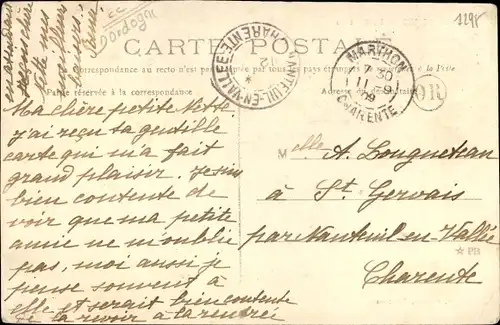 1295
cc
Dordogne
CARTE POSTALE
La Correspondance au recto n'est pas
à la Poste
Partie réservée à la correspondance
Adresse
NANTEUIL-EN-VALLÉE
CHARENTE
12
MARTHON
7 30
1 - 9
09
CHARENTE
OR
Ma chère petite Nette
j'ai reçu ta gentille
carte qui m'a fait
grand plaisir. Je suis
bien contente de
voir que ma petite
amie ne m'oublie
pas, moi aussi je
pense souvent à
elle et serait bien contente
de la revoir à la rentrée
Nette mes
meilleurs
baisers
Melle A. Longueteau
à St. Gervais
par Nanteuil-en-Vallée
Charente
PB